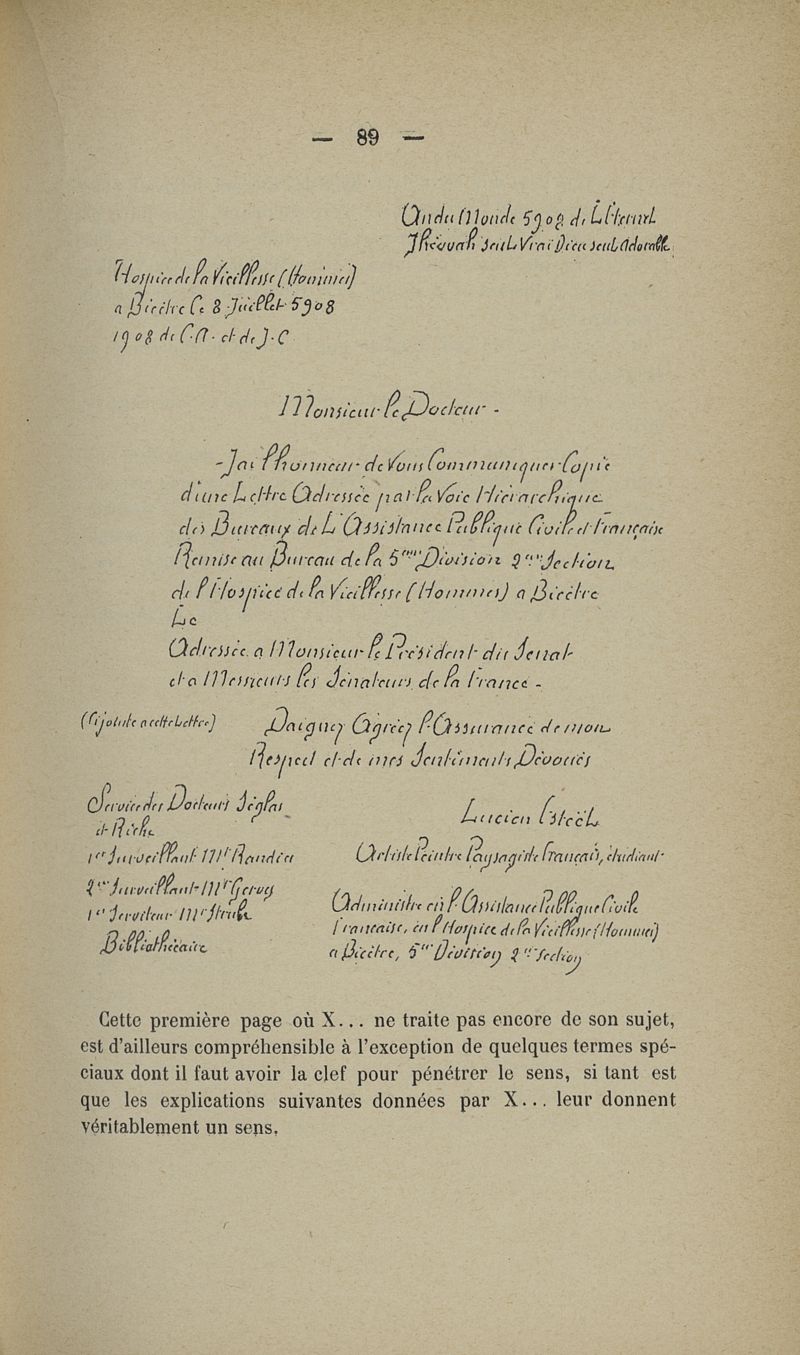 — 89 —
An du Monde 5908 de L'Eternel
Jhévoah Seul Vrai Dieu Seul Adorable
Hospice de la Vieillesse (Hommes)
a Bicêtre Ce 8 Juillet 5908
1908 de C.A. et de J.C
Monsieur le Docteur -
- Jai l'honneur de Vous Communiquer Copie
d'une Lettre Adressée par la Voie Hiérarchique
des Bureaux de L'Assistance Publique Civile et Française
Remise au Bureau de la 5me Division 2me Section
de l'Hospice de la Vieillesse (Hommes) a Bicêtre
Le
Adressée a Monsieur le Président du Senat
et a Messieurs les Sénateurs de la France -
(Cijointe a cette Lettre)
Daignez Agréez l'Assurance de mon
Respect et de mes Sentiments Dévoués
Service des Docteurs Séglas
et Riche
1er Surveillant Mr
2me Surveillant Mr
1er Serviteur Mr
Bibliothécaire
Lucien
Artiste Peintre Paysagiste Français, étudiant
Administre en l'Assistance Publique Civile
Francaise, en l'Hospice de la Vieillesse (Hommes)
a Bicêtre, 5me Division 2me Section
Cette première page où X... ne traite pas encore de son sujet,
est d'ailleurs compréhensible à l'exception de quelques termes spé-
ciaux dont il faut avoir la clef pour pénétrer le sens, si tant est
que les explications suivantes données par X... leur donnent
véritablement un sens.